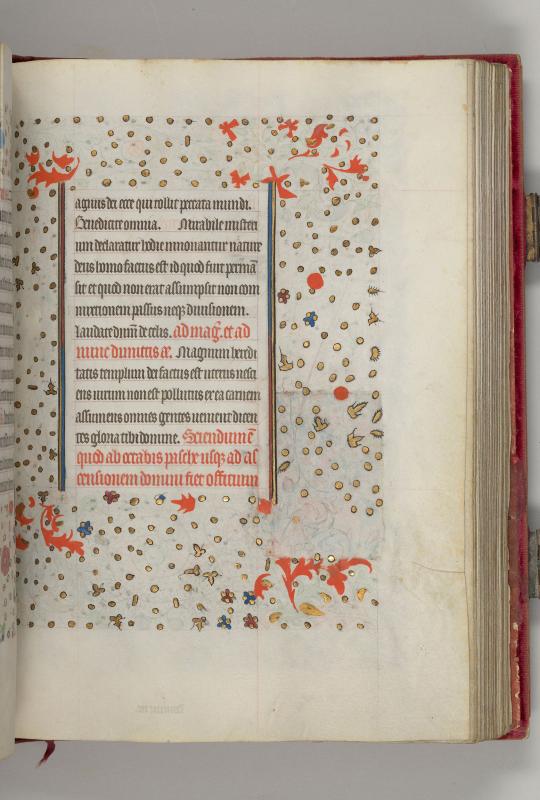 agnus dei ecce qui tollit peccata mundi.
Benedicite omnia. Mirabile misteri
um declaratur hodie innovantur nature
deus homo factus est id quod fuit permāsit
sit et quod non erat assumpsit non com
mixtionem passus neqȝ divisionem.
laudate dnm̄ de celis. ad mag̃. et ad
nunc dimittis ā. Magnum heredi
tatis templum dei factus est uterus nesci
ens virum non est pollutus ex ea carnem
assumens omnes gentes venient dicen
tes gloria tibi domine. Sciendum ē
quod ab octabis pasche usqȝ ad as
censionem domini fiet officium